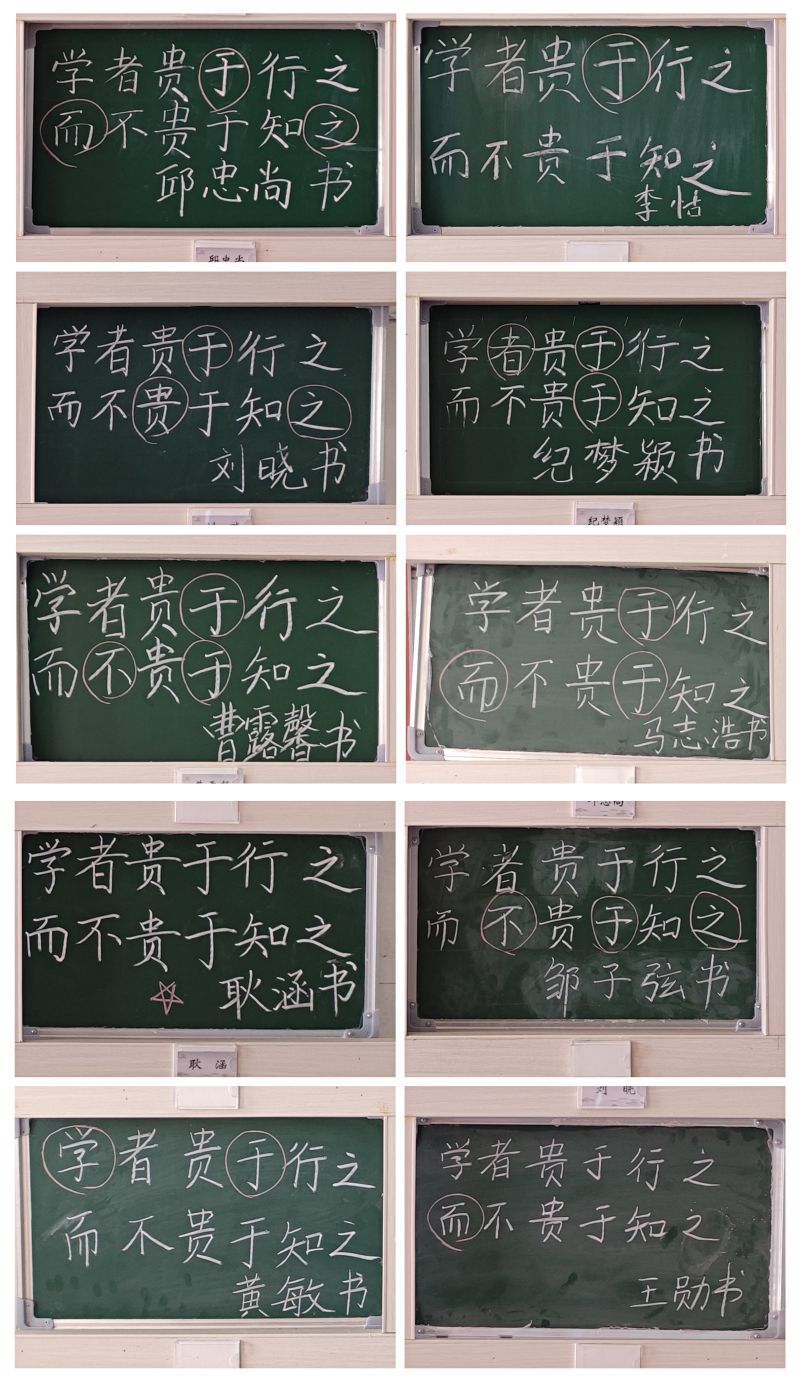 学者贵于行之
而不贵于知之
邱忠尚书
邱忠尚
学者贵于行之
而不贵于知之
李恬
学者贵于行之
而不贵于知之
刘晓书
学者贵于行之
而不贵于知之
纪梦颖书
纪梦颖
学者贵于行之
而不贵于知之
曹露馨书
学者贵于行之
而不贵于知之
马志浩书
学者贵于行之
而不贵于知之
耿涵书
耿涵
邱忠尚
学者贵于行之
而不贵于知之
邹子弦书
学者贵于行之
而不贵于知之
黄敏书
刘晓
学者贵于行之
而不贵于知之
王勋书